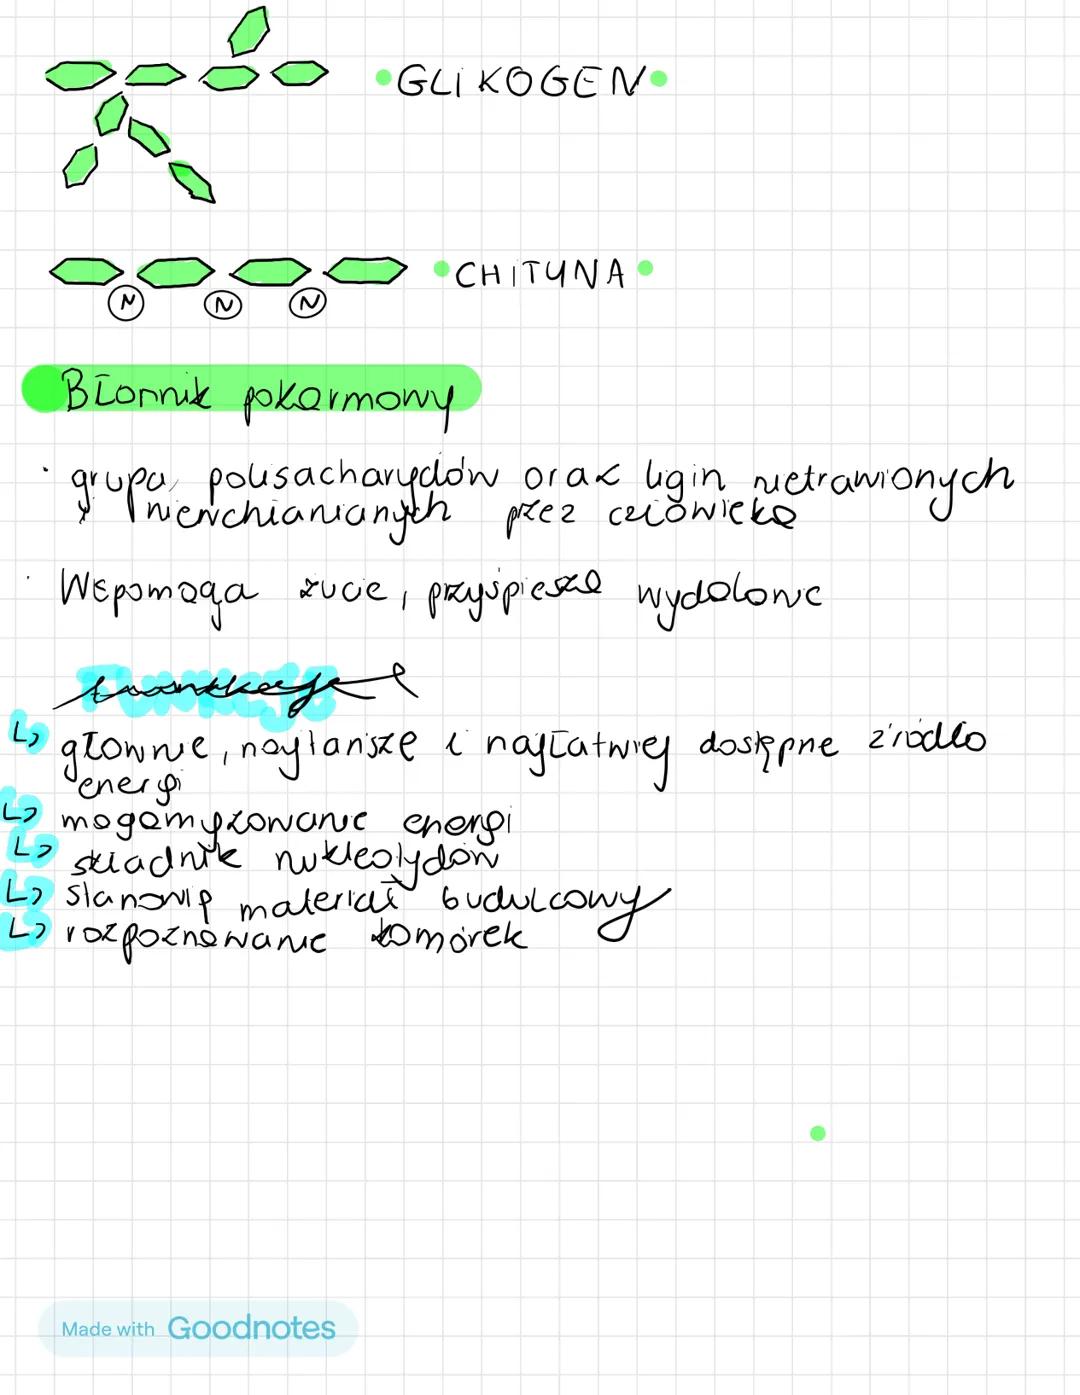 •GLIKOGEN•
•CHITYNA•
N N N
Błonnik pokarmowy
· grupa polisacharydów oraz ligin nietrawionych
i niewchłanianych przez człowieka
· Wspomaga żucie, przyśpiesza wydalanie
Funkcje
↳ główne, najtańsze i najłatwiej dostępne źródło
energi
↳ magamyzowanie energi
↳ składnik nukleotydów
↳ stanowią materiał budulcowy
↳ rozpoznawanie komórek
Made with Goodnotes